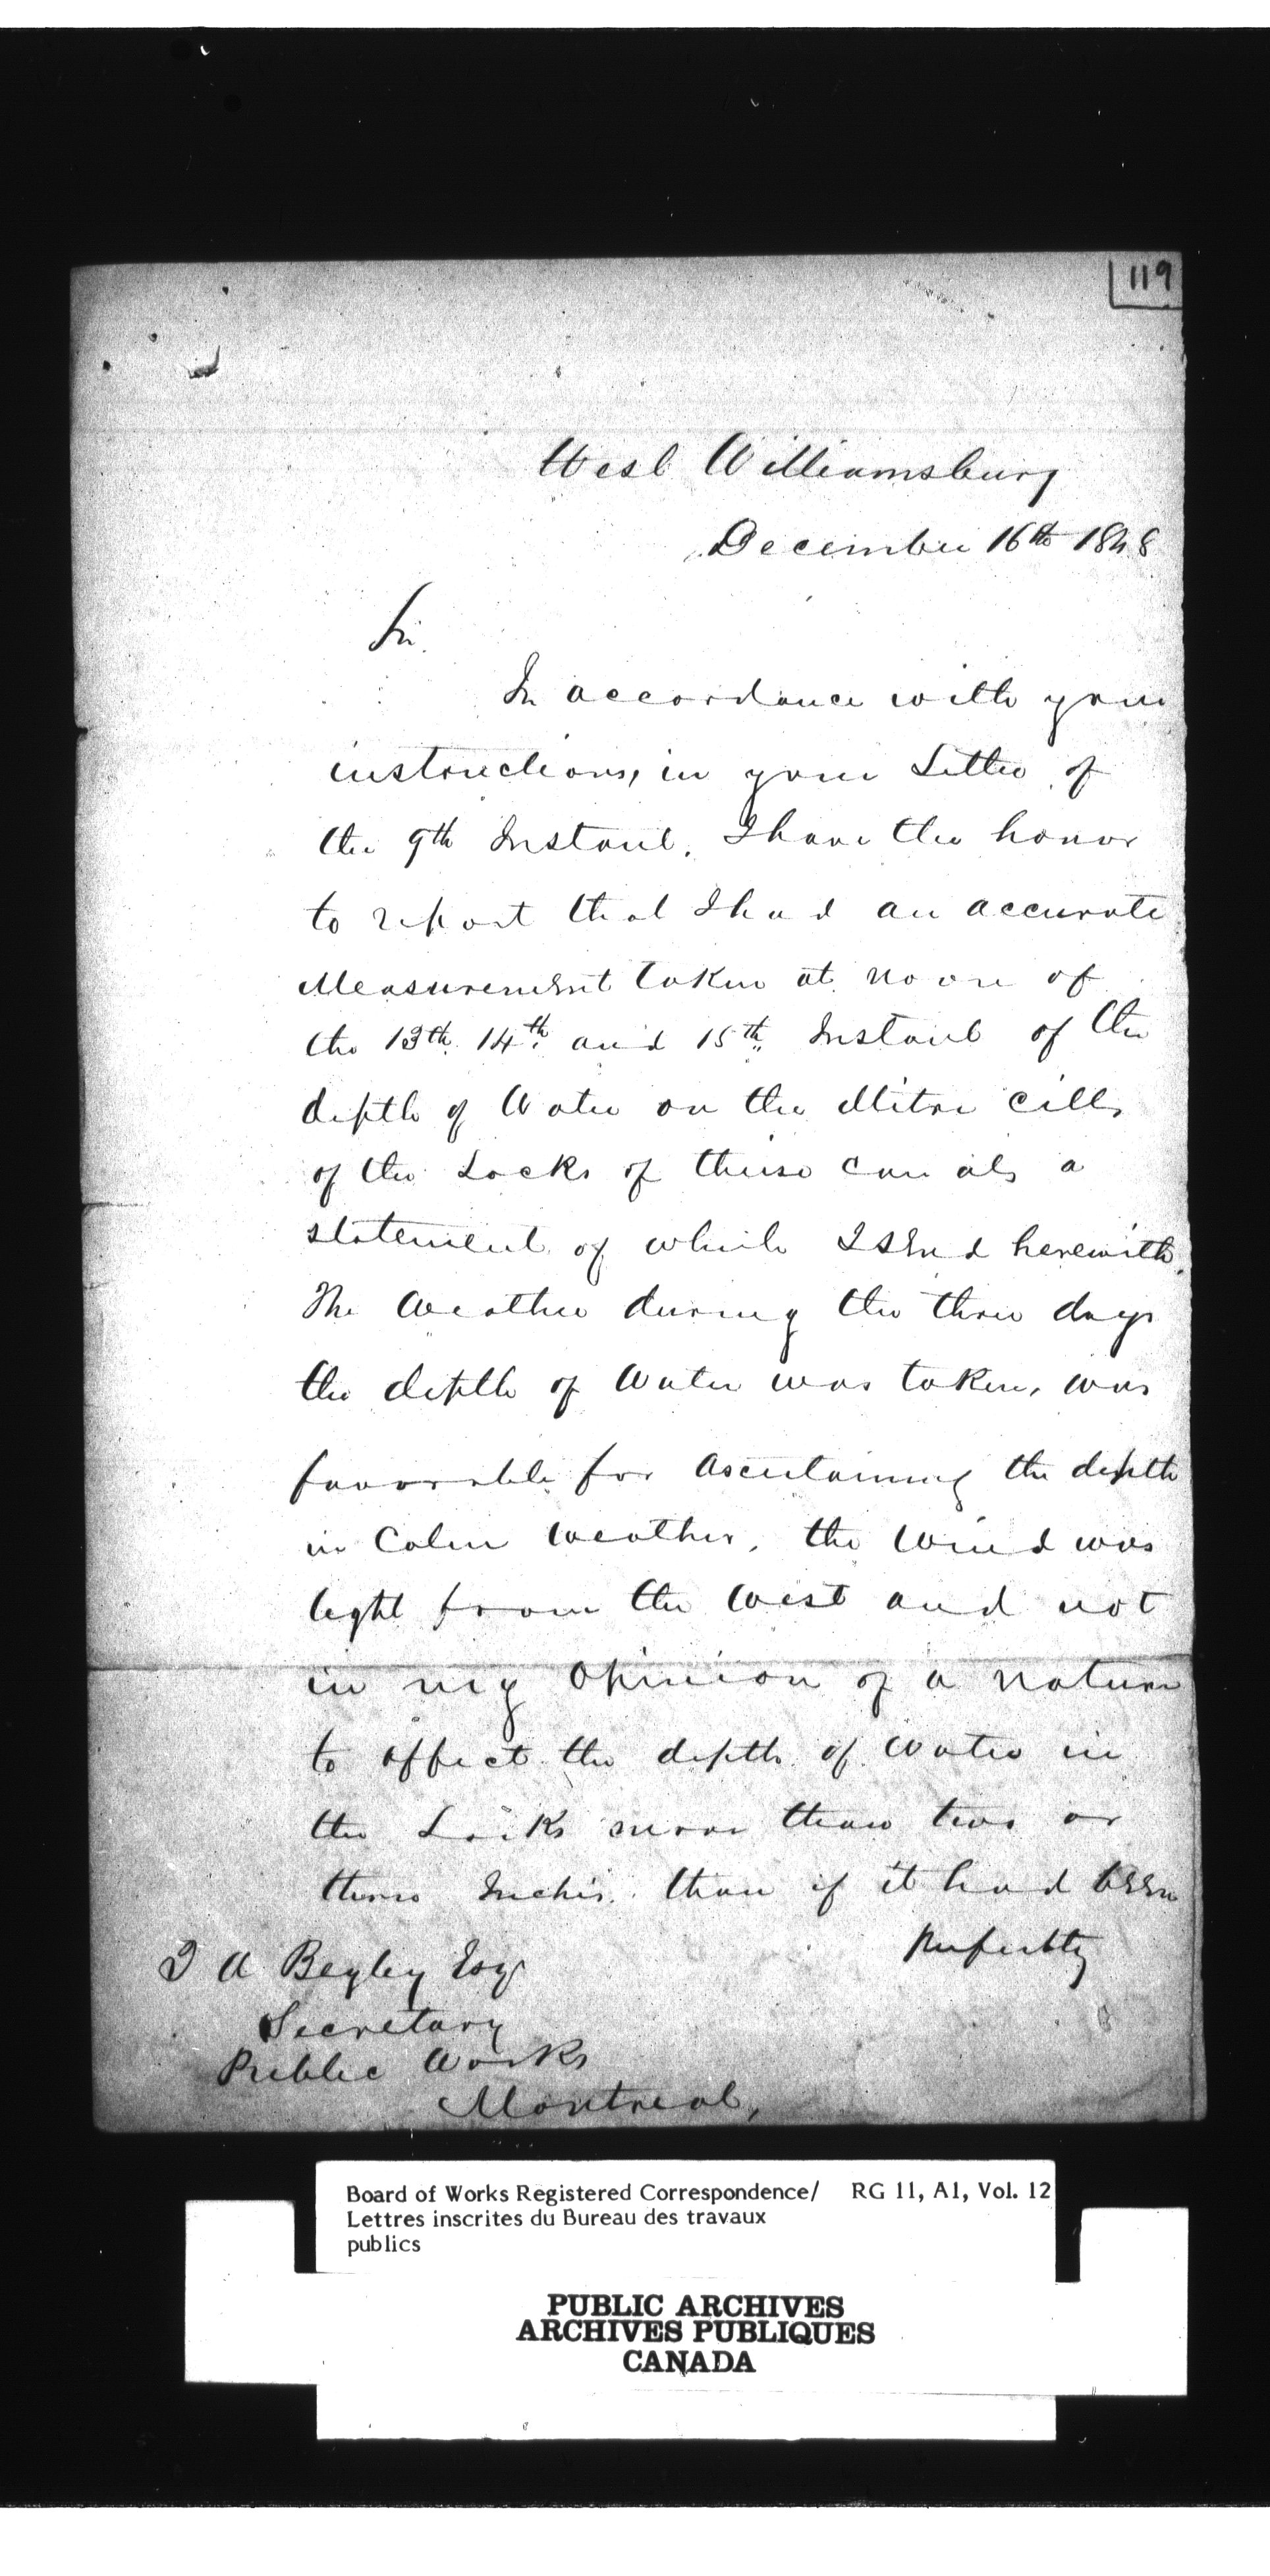 119
West Williamsburg
December 16th 1848
Sir.
In accordance with your
instructions, in your Letter of
the 9th Instant. I have the honor
to report that I had an accurate
Measurement taken at noon of
the 13th. 14th. and 15th. Instant of the
depth of Water on the Mitre cills
of the Locks of these canals a
statement of which I send herewith.
The Weather during the three days
the depth of Water was taken, was
favorable for Ascertaining the depth
in Calm Weather, the Wind was
light from the West and not
in my Opinion of a nature
to affect the depth of Water in
the Locks more than two or
three Inches. than if it had been
perfectly
T A Begley Esqr
Secretary
Public Works
Montreal,
Board of Works Registered Correspondence/ RG 11, A1, Vol. 12
Lettres inscrites du Bureau des travaux
publics
PUBLIC ARCHIVES
ARCHIVES PUBLIQUES
CANADA